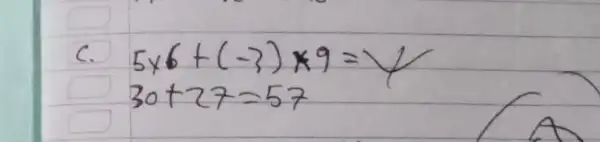 c. 5x6 + (-3) x 9 =
30+27=57